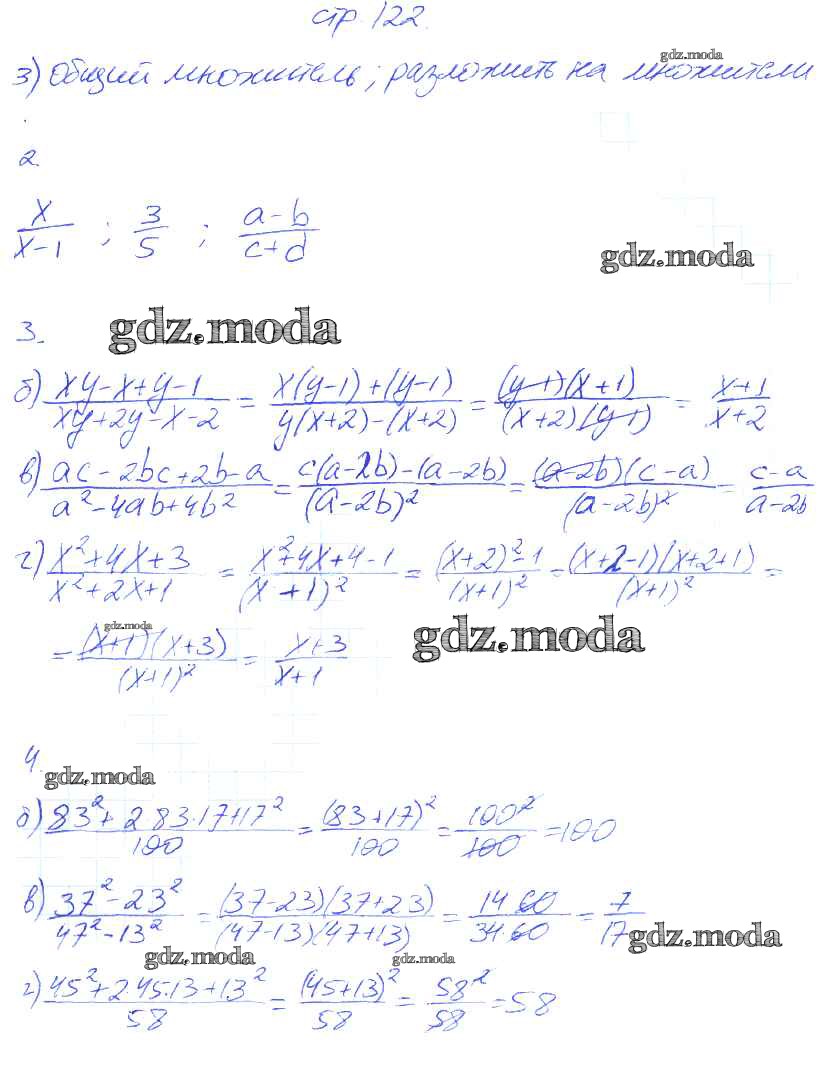 стр 122.
gdz.moda
3) Общий множитель; разложить на множители
2.
x/(x-1) ; 3/5 ; (a-b)/(c+d)
gdz.moda
3. gdz.moda
б) (xy-x+y-1)/(xy+2y-x-2) = (x(y-1)+(y-1))/(y(x+2)-(x+2)) = ((y-1)(x+1))/((x+2)(y-1)) = (x+1)/(x+2)
в) (ac-2bc+2b-a)/(a²-4ab+4b²) = (c(a-2b)-(a-2b))/(a-2b)² = ((a-2b)(c-a))/(a-2b)² = (c-a)/(a-2b)
г) (x²+4x+3)/(x²+2x+1) = (x²+4x+4-1)/(x+1)² = ((x+2)²-1)/(x+1)² = ((x+2-1)(x+2+1))/(x+1)² =
gdz.moda
= ((x+1)(x+3))/(x+1)² = (x+3)/(x+1)
gdz.moda
4.
gdz.moda
б) (83²+2 83·17+17²)/100 = (83+17)²/100 = 100²/100 = 100
в) (37²-23²)/(47²-13²) = ((37-23)(37+23))/((47-13)(47+13)) = (14 60)/(34 60) = 7/17
gdz.moda
gdz.moda
gdz.moda
г) (45²+2·45·13+13²)/58 = (45+13)²/58 = 58²/58 = 58